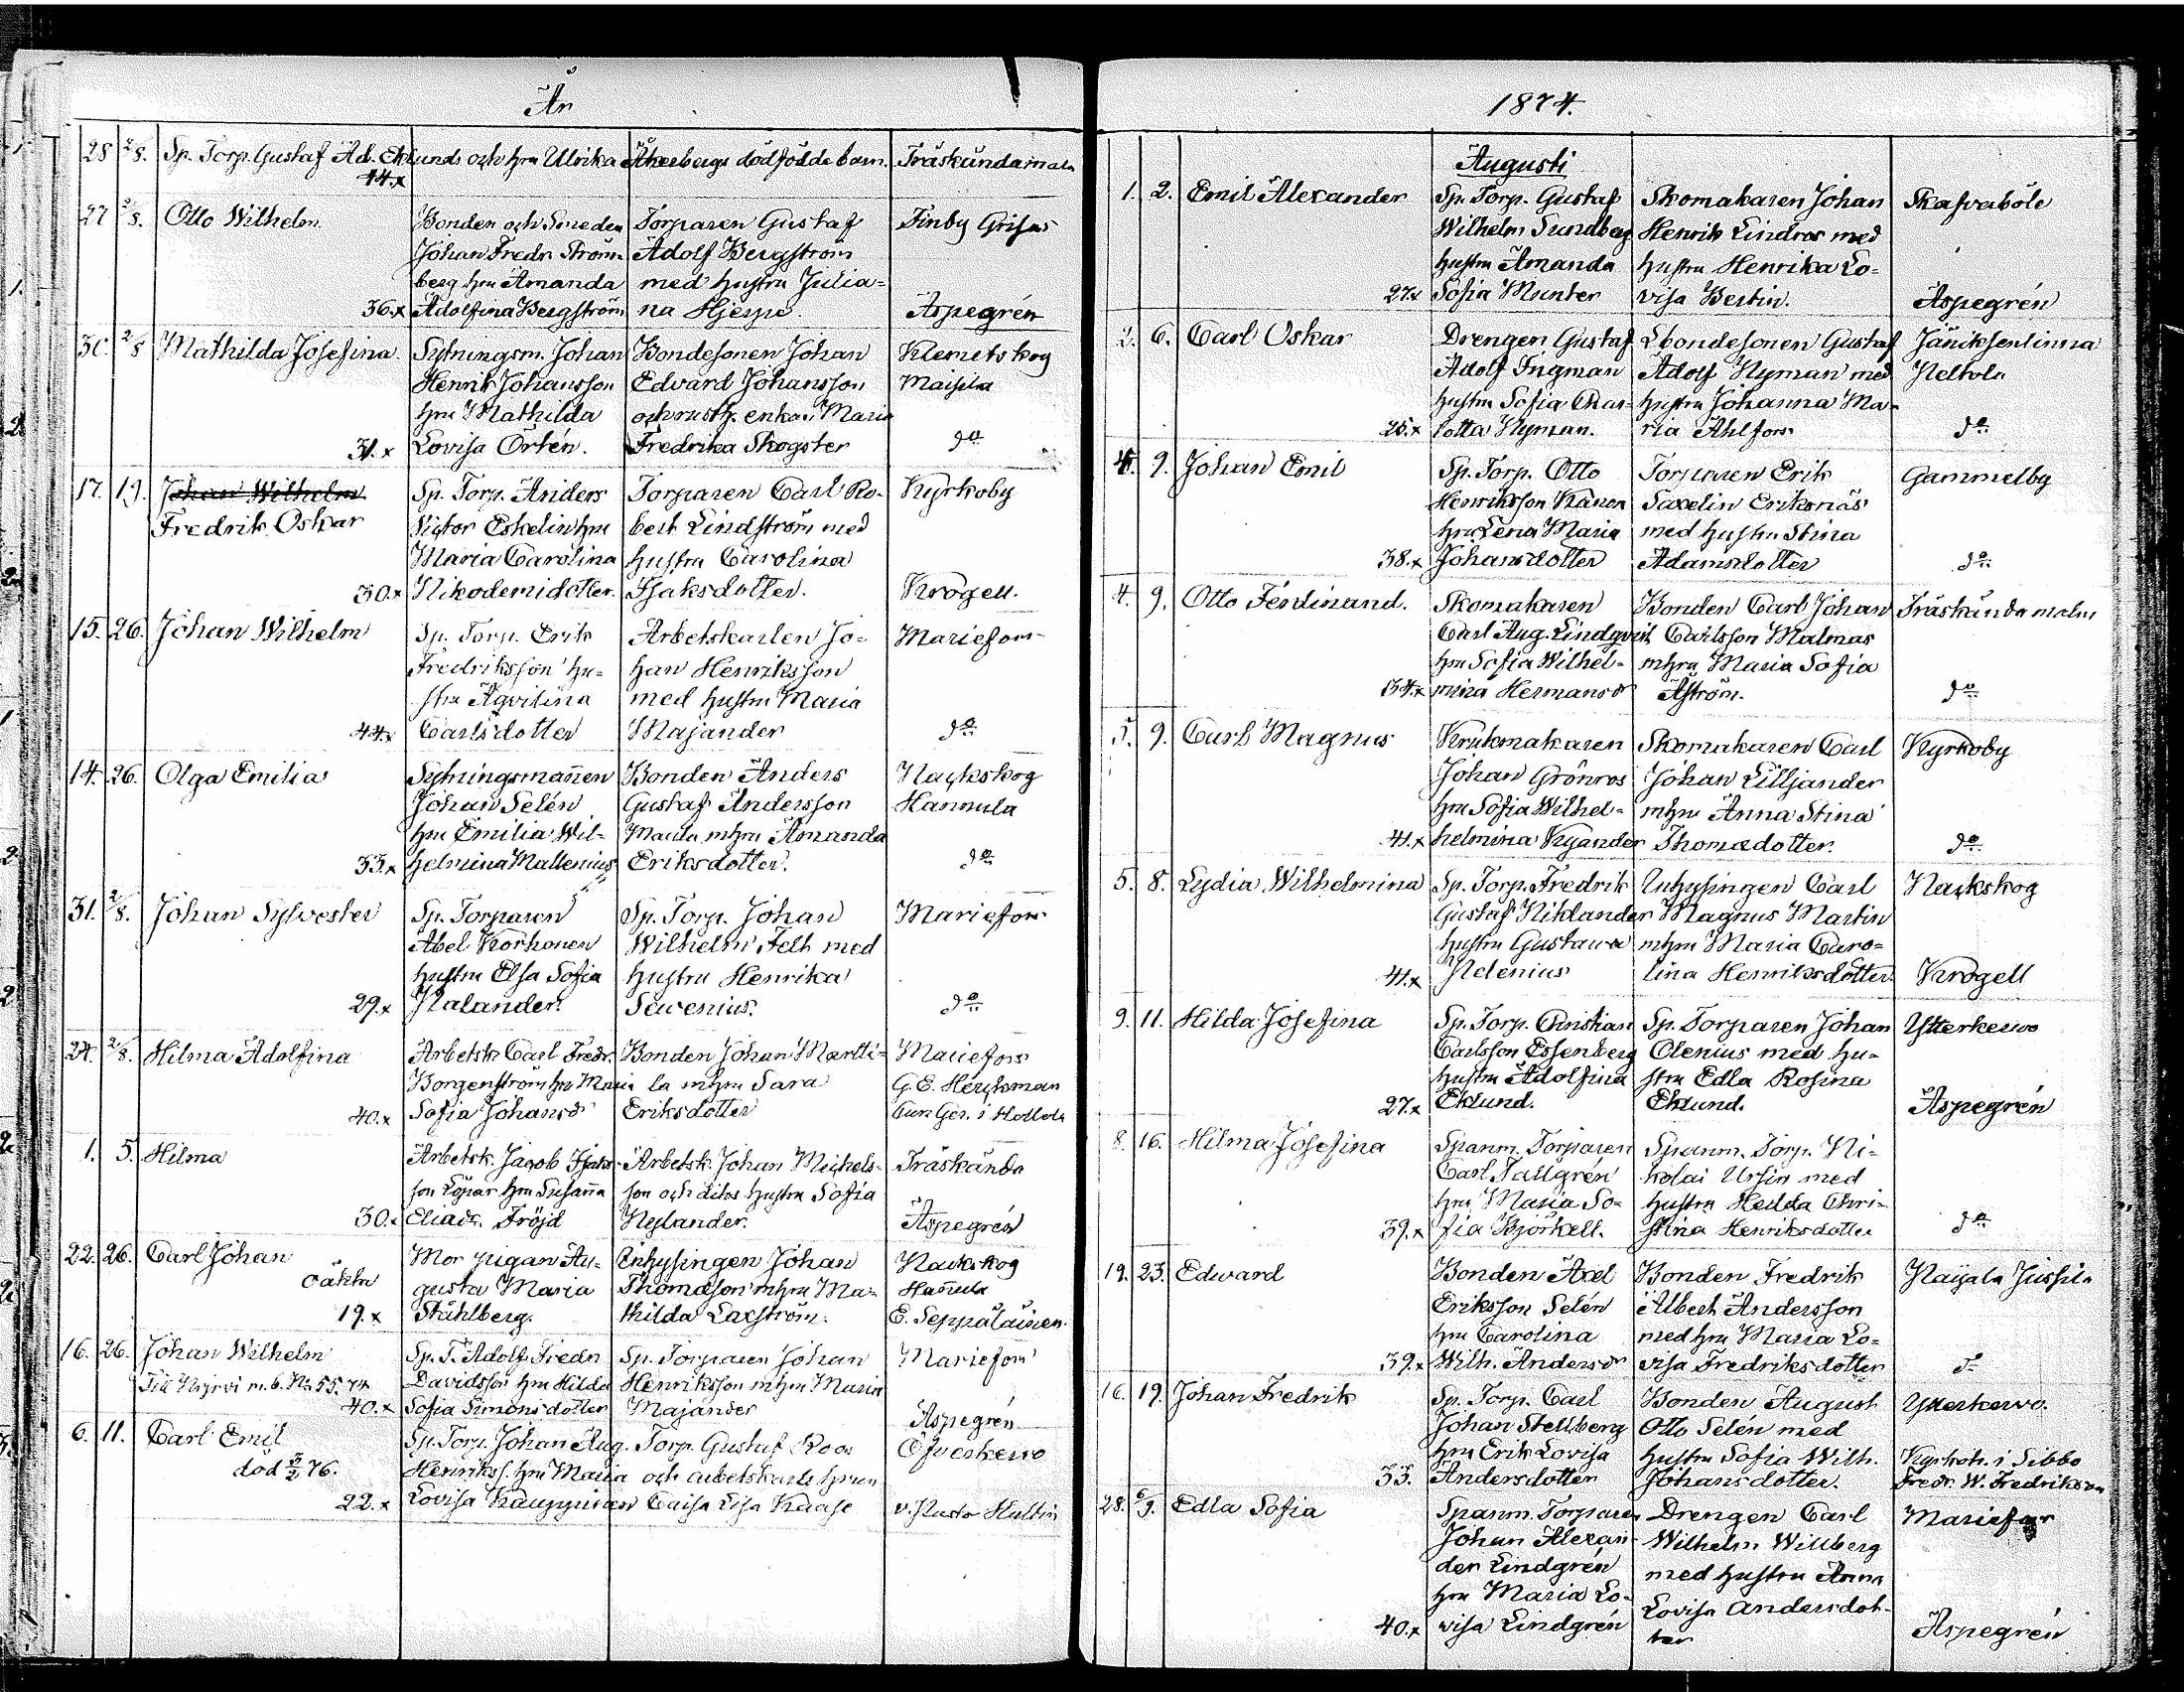 År
28 2/8. Sp. Torp. Gustaf Ad. Eklunds och hru Ulrika Åkerbergs dödfödda barn. Träskändamalm
44.x
27 2/8. Otto Wilhelm Bonden och Smeden Torparen Gustaf Finby Grisas
Johan Fredr. Ström- Adolf Bergström
berg hru Amanda med hustru Julia-
36.x Adolfina Bergström na Hjerpe. Aspegrén
30. 2/8 Mathilda Josefina. Sytningsm. Johan Bondesonen Johan Klemetskog
Henrik Johansson Edvard Johansson Maisila
hru Mathilda och rusth. enkan Maria
31.x Lovisa Örtén. Fredrika Skogster do
17. 19. Johan Wilhelm Sp. Torp. Anders Torparen Carl Ro- Kyrkoby
Fredrik Oskar Victor Eskelin hru bert Lindström med
Maria Carolina hustru Carolina
30.x Nikodemidotter. Isaksdotter. Krogell.
15. 26. Johan Wilhelm Sp. Torp. Erik Arbetskarlen Jo- Mariefors
Fredriksson hu- han Henriksson
stru Aqvilina med hustru Maria
44.x Carlsdotter Majander do
14. 26. Olga Emilia Sytningsmannen Bonden Anders Nackskog
Johan Selén Gustaf Andersson Hannula
hru Emilia Wil- Maula mhru Amanda
33.x helmina Mallenius Eriksdotter. do
31. 2/8. Johan Sylvester Sp. Torparen Sp. Torp. Johan Mariefors
Abel Korhonen Wilhelm Felt med
hustru Elsa Sofia hustru Henrika
29.x Nalander. Sevenius. do
24. 2/8. Hilma Adolfina Arbetsk. Carl Fredr. Bonden Johan Martti- Mariefors
Borgenström hru Maria la mhru Sara G. E. Heurksman
40.x Sofia Johansdr Eriksdotter
1. 5. Hilma Arbetsk. Jacob Isaks- Arbetsk. Johan Michels- Träskända
son Löpar hru Susanna son och dito hustru Sofia
30.x Eliasdr. Fröjd Nylander. Aspegrén
22. 26. Carl Johan Mor pigan Au- Inhysingen Johan Nackskog
oäkta gusta Maria Thomasson mhru Ma- Hannula
19.x Ståhlberg. thilda Laxström. E. Seppäläinen.
16. 26. Johan Wilhelm Sp. T. Adolf Fredr Sp. Torparen Johan Mariefors
Till m.b. No 55. 74 Davidsson hru Hilda Henriksson mhru Maria
40.x Sofia Simonsdotter Majander Aspegrén
6. 11. Carl Emil Sp. Torp. Johan Aug. Torp. Gustaf Roos Öfverkervo
död 76. Henrikss. hru Maria och arbetskarls hrun
22.x Lovisa Kauppinen Caisa Lisa Kaase Hultin
1874.
Augusti
1. 2. Emil Alexander Sp. Torp. Gustaf Skomakaren Johan Skafvaböle
Wilhelm Sundberg Henrik Lindros med
hustru Amanda hustru Henrika Lo-
27.x Sofia Munter visa Bertin. Aspegrén
2. 6. Carl Oskar Drengen Gustaf Bondesonen Gustaf Jäniksenlinna
Adolf Ingman Adolf Nyman med Neltola
hustru Sofia Char- hustru Johanna Ma-
25.x lotta Nyman. ria Ahlfors do
4. 9. Johan Emil Sp. Torp. Otto Torparen Erik Gammelby
Henriksson Kanon Saxelin Eriksnäs
hru Lena Maria med hustru Stina
38.x Johansdotter Adamsdotter do
4. 9. Otto Ferdinand. Skomakaren Bonden Carl Johan Träskända malm
Carl Aug. Lindqvist Carlsson Malmas
hru Sofia Wilhel- mhru Maria Sofia
34.x mina Hermansdr Åström. do
5. 9. Carl Magnus Krukmakaren Skomakaren Carl Kyrkoby
Johan Grönros Johan Lilljander
hru Sofia Wilhel- mhru Anna Stina
41.x helmina Kyander Thomasdotter. do
5. 8. Lydia Wilhelmina Sp. Torp. Fredrik Inhysingen Carl Nackskog
Gustaf Niklander Magnus Martin
hustru Gustava mhru Maria Caro-
41.x Helenius lina Henriksdotter Krogell
9. 11. Hilda Josefina Sp. Torp. Christian Sp. Torparen Johan Ytterkervo
Carlsson Essenberg Olenius med hu-
hustru Adolfina stru Edla Rosina
27.x Eklund. Eklund. Aspegrén
8. 16. Hilma Josefina Spanm. Torparen Spanm. Torp. Ni-
Carl Tallgrén kolai Ursin med
hru Maria So- hustru Hedda Chri-
39.x fia Björkell. stina Henriksdotter do
19. 23. Edward Bonden Axel Bonden Fredrik Naijala Jussila
Eriksson Selén Albert Andersson
hru Carolina med hru Maria Lo-
39.x Wilh. Andersdr visa Fredriksdotter do
16. 19. Johan Fredrik Sp. Torp. Carl Bonden August Ytterkervo.
Johan Stellberg Otto Selén med
hru Erik Lovisa hustru Sofia Wilh. Kyrkoh. i Sibbo
33. Andersdotter Johansdotter. Fredr. W. Fredriksson
28. 6/9. Edla Sofia Spanm. Torparen Drengen Carl Mariefors
Johan Alexan- Wilhelm Willberg
der Lindgrén med hustru Anna
hru Maria Lo- Lovisa Andersdot-
40.x visa Lindgrén ter Aspegrén